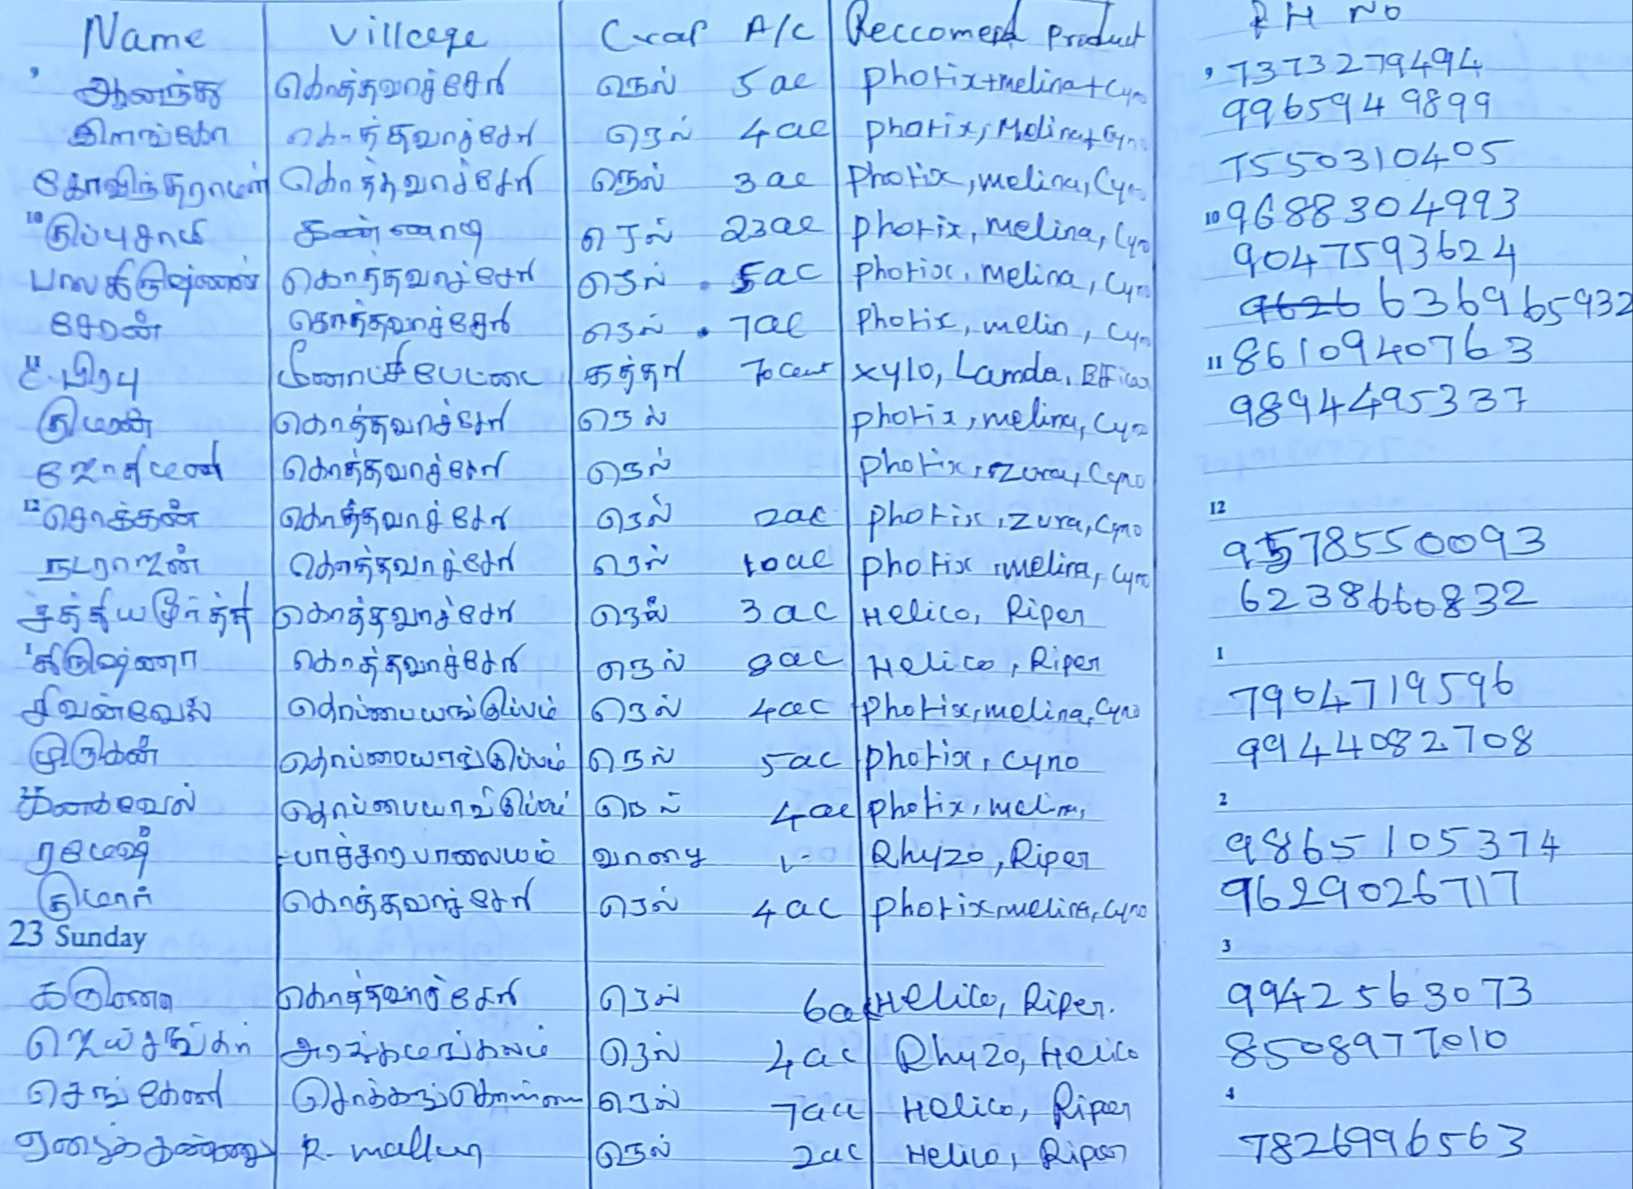 Name Villege Crop A/C Reccomend Product PH NO
ஆனந்து கொத்தவாச்சேரி நெல் 5 ac Photix+melina+Cyno 7373279494
இளங்கோ கொத்தவாச்சேரி நெல் 4ac Photix, Melina+Cyno 9965949899
கோவிந்தராமன் கொத்தவாச்சேரி நெல் 3 ac Photix, melina, Cyno 7550310405
10 குப்புசாமி கண்ணாடி நெல் 23ac Photix, Melina, Cyno 10 9688304993
பாலகிருஷ்ணன் கொத்தவாச்சேரி நெல் 5ac Photix, Melina, Cyno 9047593624
சேரன் கொத்தவாச்சேரி நெல் 7ac Photix, melin, Cyno 9626 636965932
11 பிரபு மீனாட்சிபேட்டை கத்தரி 70 cent Xylo, Lamda, 11 8610940763
குமரன் கொத்தவாச்சேரி நெல் Photix, melina, Cyno 9894495337
ஜோதிமணி கொத்தவாச்சேரி நெல் Photix, Zura, Cyno
12 சொக்கன் கொத்தவாச்சேரி நெல் 2ac Photix, Zura, Cyno 12
நடராஜன் கொத்தவாச்சேரி நெல் 10ac Photix, melina, Cyno 9578550093
சத்தியமூர்த்தி கொத்தவாச்சேரி நெல் 3 ac Helico, Riper 6238660832
1 கிருஷ்ணா கொத்தவாச்சேரி நெல் 8ac Helico, Riper 1
சிவன்வேல் தொப்பையங்குப்பம் நெல் 4ac Photix, melina, Cyno 7904719596
முருகன் தொப்பையாங்குப்பம் நெல் 5ac Photix, Cyno 9944082708
2 கனகவேல் தொப்பையாங்குப்பம் நெல் 4ac Photix, melina, 2
ரமேஷ் பாச்சாரபாளையம் வாழை 1- Rhyzo, Riper 98651105374
குமார் கொத்தவாச்சேரி நெல் 4ac Photix, melina, Cyno 9629026717
23 Sunday 3
கருணா கொத்தவாச்சேரி நெல் 6ac Helico, Riper. 9942563073
ஜெய்சங்கர் அரங்கமங்கலம் நெல் 4ac Rhyzo, Helico 8508977010
செங்கேணி நெல் 7ac Helico, Riper 4
ஏழைக்கண்ணு R. mallur நெல் 2ac Helico, Riper 7826996563